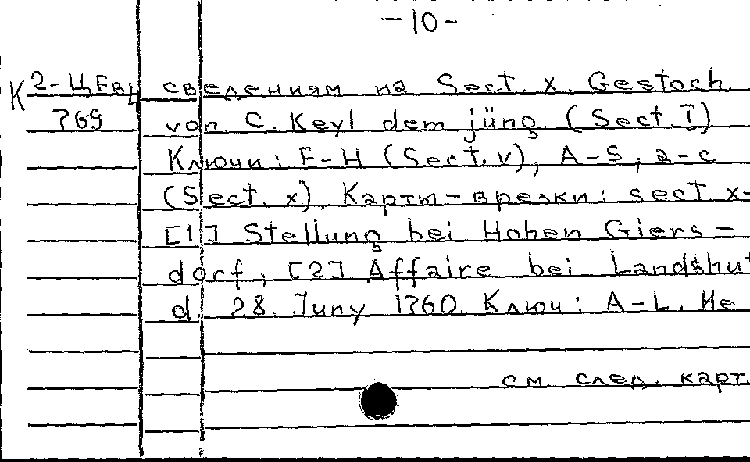 -10-
К 2-ЦЕвц сведениям на Sect. X. Gestoch.
769 von C. Keyl dem jüng (Sect. I)
Ключи: F-H (Sect. V), A-S, a-c
(Sect. X). Карты-врезки: sect X-
[1] Stellung bei Hohen Giers-
dorf; [2] Affaire bei Landshut
d. 28. Juny 1760. Ключ: A-L. Не
см. след. карт.